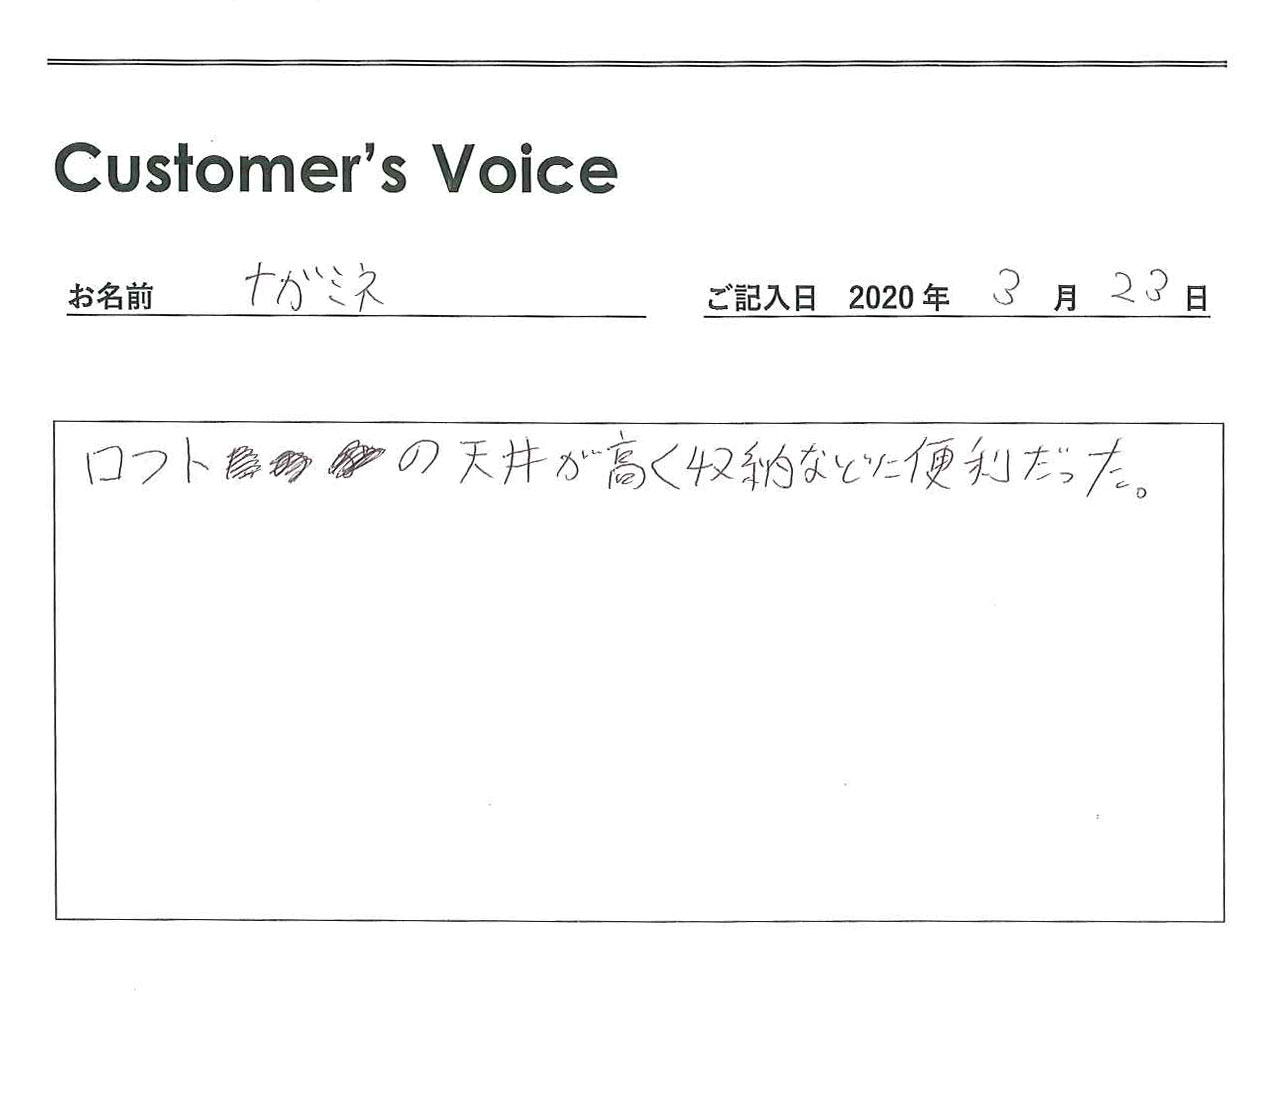 Customer's Voice
お名前 ナガミネ ご記入日 2020年 3月 23日
ロフトの天井が高く収納などに便利だった。